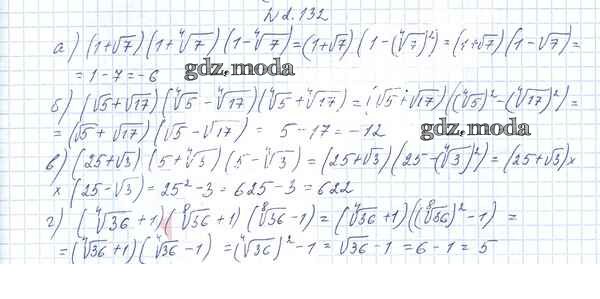 № d. 132
а) (1+√7)(1+⁴√7)(1-⁴√7)=(1+√7)(1-(⁴√7)²)=(1+√7)(1-√7)=
=1-7=-6 gdz.moda
б) (√5+√17)(⁴√5-⁴√17)(⁴√5+⁴√17)=(√5+√17)((⁴√5)²-(⁴√17)²)=
=(√5+√17)(√5-√17)= 5-17=-12 gdz.moda
в) (25+√3)(5+⁴√3)(5-⁴√3)=(25+√3)(25-(⁴√3)²)=(25+√3)×
×(25-√3)=25²-3=625-3=622
г) (⁴√36+1)(⁸√36+1)(⁸√36-1)=(⁴√36+1)((⁸√36)²-1)=
=(⁴√36+1)(⁴√36-1)=(⁴√36)²-1=√36-1=6-1=5